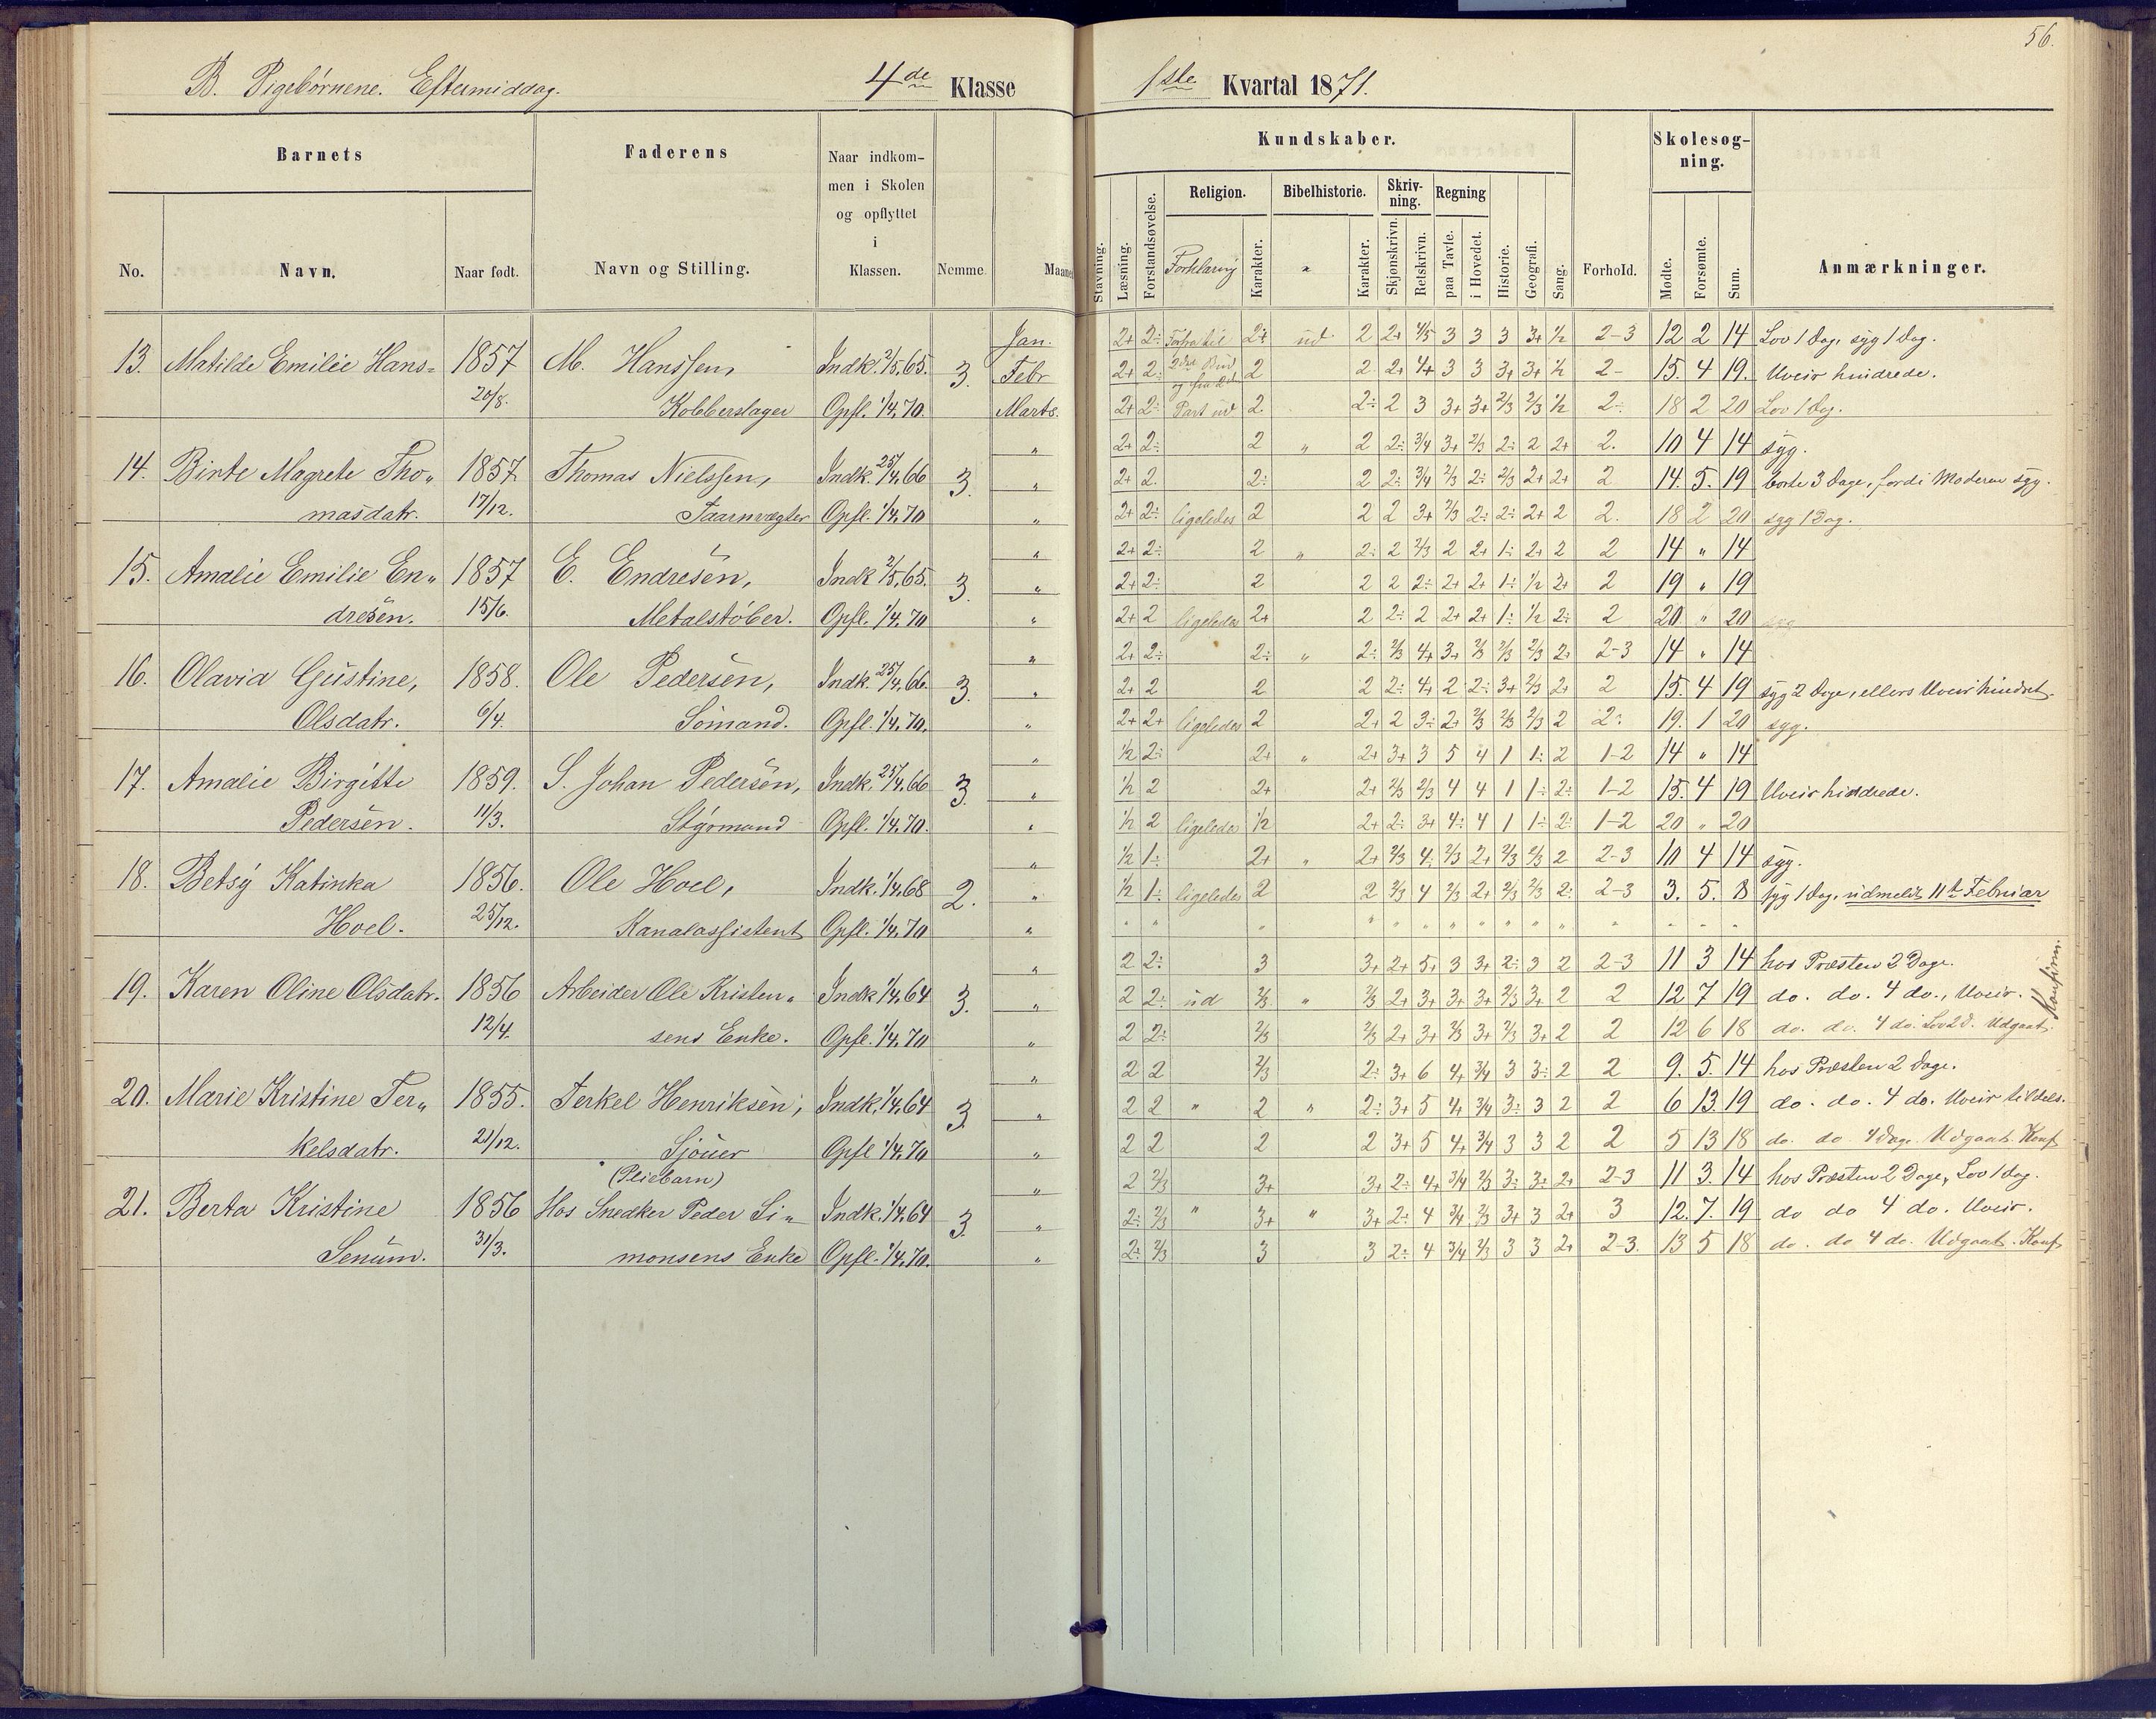 56.
B. Pigebørnene. Eftermiddag. 4de Klasse 1ste Kvartal 1871.
Barnets Faderens Naar indkom- Kundskaber. Skolesøg-
men i Skolen ning.
og opflyttet Religion. Bibelhistorie. Skriv- Regning
i ning.
No. Navn. Naar født. Navn og Stilling. Klassen. Nemme Maaned Stavning. Læsning. Forstandsøvelse. Forklaring Karakter. " Karakter. Skjønskrivn. Retskrivn. paa Tavle. i Hovedet. Historie. Geografi. Sang. Forhold. Mødte. Forsømte. Sum. Anmærkninger.
Jan. 2+ 2÷ 2+ ud 2 2+ 4/5 3 3 3 3+ ½ 2-3 12 2 14 Lov 1 Dag, syg 1 Dag.
13. Matilde Emilie Hans- 1857 M. Hanssen, Indk. 2/5,65. 3. Febr 2+ 2÷ 2 2 2+ 4+ 3 3 3+ 3+ ½ 2- 15. 4 19. Uveir hindrede.
20/8. Kobberslager Opfl. 1/4,70. Marts. 2+ 2÷ Part ud 2 2÷ 2 3 3+ 3+ 2/3 2/3 ½ 2÷ 18 2 20 Lov 1 Dag.
" 2+ 2÷ 2 " 2 2÷ 3/4 3+ 2/3 2÷ 2 2+ 2. 10 4 14 syg.
14. Birte Magrete Tho„ 1857 Thomas Nielssen, Indk. 25/4,66 3. " 2+ 2. 2÷ 2 2÷ 3/4 2/3 2÷ 2/3 2+ 2+ 2 14. 5. 19 borte 3 Dage, fordi Moderen syg.
masdatr. 17/12. Taarnvægter Opfl. 1/4,70 " 2+ 2÷ ligeledes 2 2 2 3+ 2/3 2÷ 2÷ 2+ 2 2. 18 2 20 syg 1 Dag.
" 2+ 2÷ 2 " 2÷ 2 2/3 2 2+ 1÷ 2+ 2 2 14 " 14
15. Amalie Emilie En„ 1857 E. Endresen, Indk 2/5,65. 3. " 2+ 2÷ 2 2 2 2÷ 2+ 2+ 1÷ ½ 2+ 2 19 " 19
dresen. 15/6. Metalstøber. Opfl. 1/4,70 " 2+ 2 ligeledes 2+ 2 2÷ 2 2+ 2+ 1÷ ½ 2÷ 2 20. " 20
" 2+ 2÷ 2÷ " 2÷ 2/3 4+ 3+ 2/3 2/3 2/3 2+ 2-3 14 " 14
16. Olavia Gustine, 1858. Ole Pedersen, Indk. 25/4,66. 3. " 2+ 2 2 2 2÷ 4+ 2 2÷ 3+ 2/3 2+ 2 15. 4 19 syg 2 Dage, ellers Uveir hindret.
Olsdatr. 6/4. Sømand. Opfl. 1/4,70. " 2+ 2+ ligeledes 2 2+ 2 3÷ 2+ 2/3 2/3 2/3 2 2÷ 19. 1 20 syg.
" ½ 2÷ 2+ " 2+ 3+ 3 5 4 1 1÷ 2 1-2 14 " 14
17. Amalie Birgitte 1859. S. Johan Pedersen, Indk. 25/4,66 3. " ½ 2 2+ 2+ 2/3 2/3 4 4 1 1÷ 2÷ 1-2 15. 4 19 Uveir hindrede.
Pedersen. 11/3. Styrmand Opfl. 1/4,70. " ½ 2 ligeledes ½ 2+ 2÷ 3+ 4÷ 4 1 1÷ 2÷ 1-2 20 " 20
" ½ 1÷ 2+ " 2+ 2/3 4÷ 2/3 2+ 2/3 2/3 2 2-3 10 4 14 syg.
18. Betsy Katinka 1856. Ole Hoel, Indk. 1/4,68 2. " ½ 1÷ ligeledes 2 2 2/3 4 2/3 2+ 2/3 2/3 2÷ 2-3 3. 5. 8 syg 1 Dag, udmeldt 11te Februar
Hoel. 25/12. Kanalassistent Opfl. 1/4,70 " " " " " " " " " " " " " " "
" 2 2÷ 3 3+ 2+ 5+ 3 3+ 2÷ 3 2 2-3 11 3 14 hos Præsten 2 Dage.
19. Karen Oline Olsdatr. 1856 Arbeider Ole Kristen„ Indk 1/4,64 3. " 2 2÷ ud 2/3 " 2/3 2+ 3+ 3+ 3+ 2/3 3+ 2 2 12 7 19 do. do. 4 do., Uveir.
12/4. sens Enke. Opfl. 1/4,70 " 2 2÷ 2/3 2/3 2+ 3+ 2/3 3+ 2/3 3+ 2 2 12 6 18 do. do. 4 do. Lov 2 d. Udgaat. Konfirm.
" 2 2 2/3 2÷ 3+ 6 4+ 3/4 3 3÷ 2 2 9. 5. 14 hos Præsten 2 Dage.
20. Marie Kristine Ter„ 1855. Terkel Henriksen, Indk. 1/4,64 3. " 2 2 " 2 " 2÷ 3+ 5 4+ 3/4 3÷ 3 2 2 6 13. 19 do. do. 4 do. Uveir tildels.
kelsdatr. 21/12. Sjøuer Opfl 1/4,70 " 2 2 2 2 3+ 5 4+ 3/4 3 3 2 2 5 13 18 do. do 4 Dage. Udgaat. Konf
(Pliebarn) " 2 2/3 3+ 3+ 2÷ 4+ 3/4 2/3 3÷ 3÷ 2+ 2-3 11 3. 14 hos Præsten 2 Dage, Lov 1 dag.
21. Berta Kristine 1856 Hos Snedker Peder Si„ Indk. 1/4,64 3. " 2÷ 2/3 " 3+ " 3+ 2÷ 4 3/4 2/3 3+ 3 2+ 3 12. 7. 19 do do 4 do. Uveir.
Senum. 31/3. monsens Enke Opfl. 1/4,70. " 2÷ 2/3 3 3 2÷ 4 3/4 2/3 3 3 2+ 2-3. 13 5 18 do. do 4 do. Udgaat. Konf